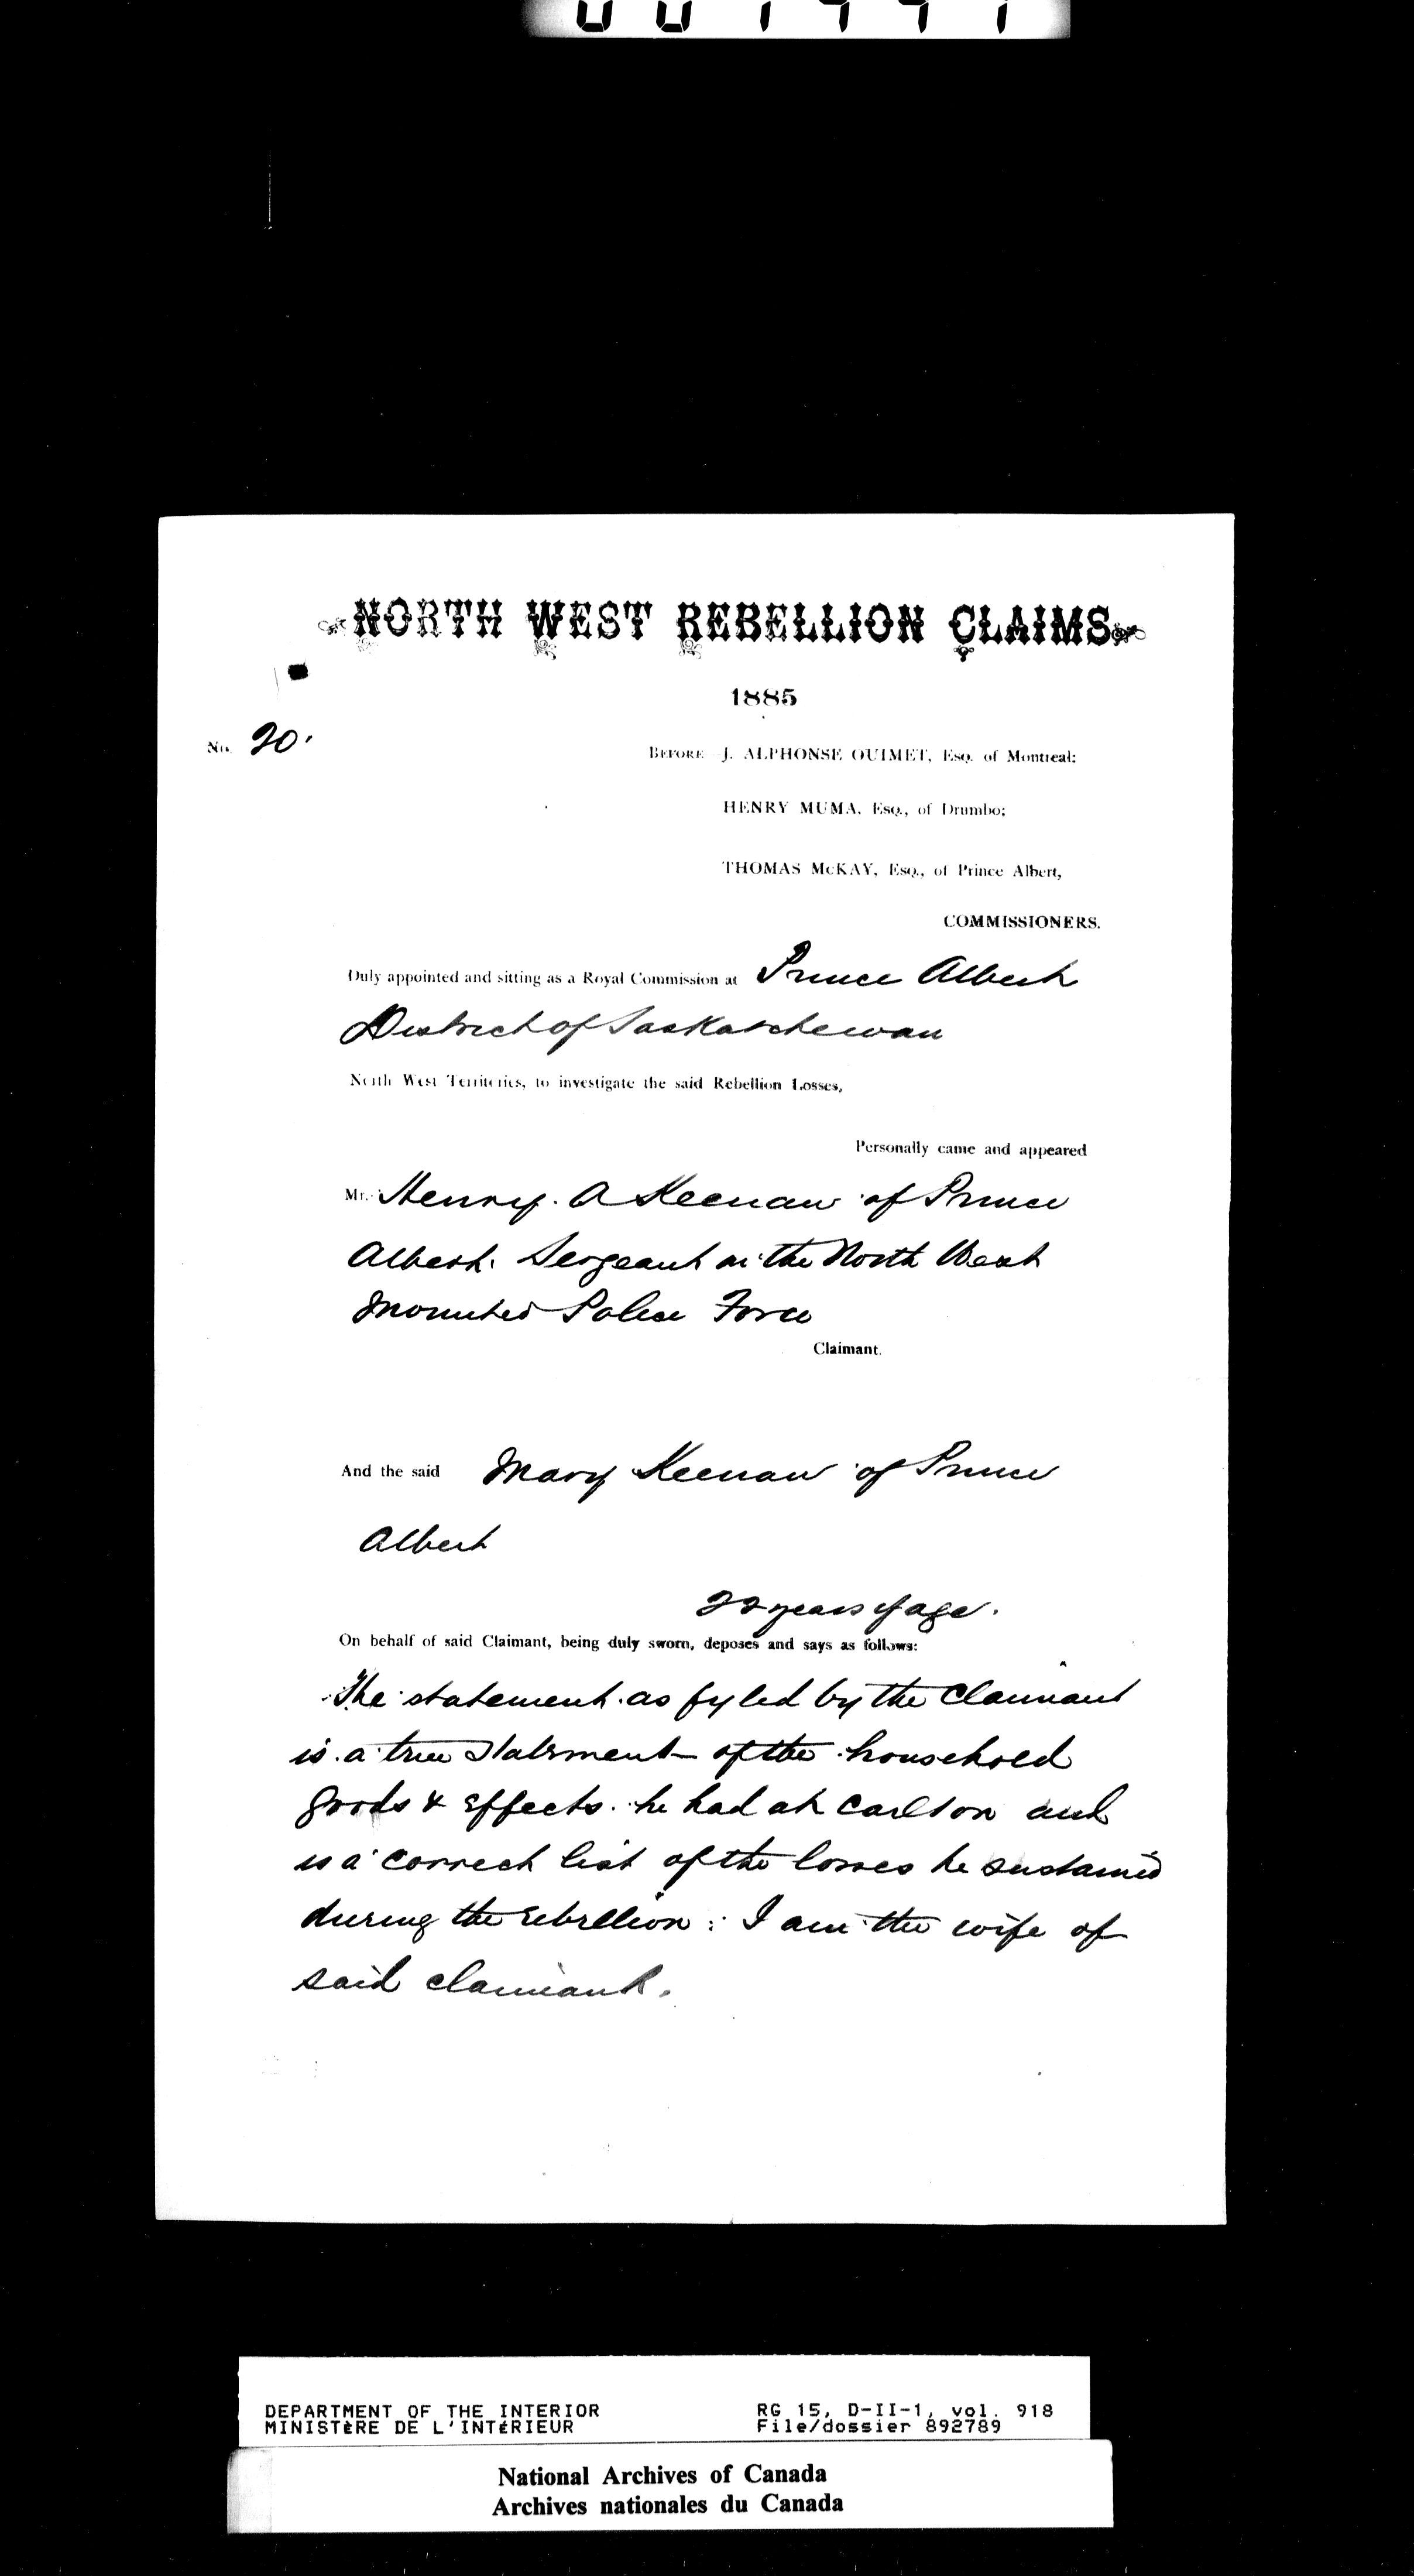 NORTH WEST REBELLION CLAIMS.
1885
No. 20.
BEFORE J. ALPHONSE OUIMET, Esq. of Montreal:
HENRY MUMA, Esq., of Drumbo;
THOMAS McKAY, Esq., of Prince Albert,
COMMISSIONERS.
Duly appointed and sitting as a Royal Commission at Prince Albert
District of Saskatchewan
North West Territories, to investigate the said Rebellion Losses,
Personally came and appeared
Mr. Henry. A Keenan of Prince
Albert. Sergeant in the North West
Mounted Police Force
Claimant.
And the said Mary Keenan of Prince
Albert
22 years of age.
On behalf of said Claimant, being duly sworn, deposes and says as follows:
The statement as fyled by the Claimant
is a true statement of the household
goods & effects he had at Carlton and
is a correct list of the losses he sustained
during the rebellion: I am the wife of
said claimant.
DEPARTMENT OF THE INTERIOR RG 15, D-II-1, vol. 918
MINISTÈRE DE L'INTÉRIEUR File/dossier 892789
National Archives of Canada
Archives nationales du Canada